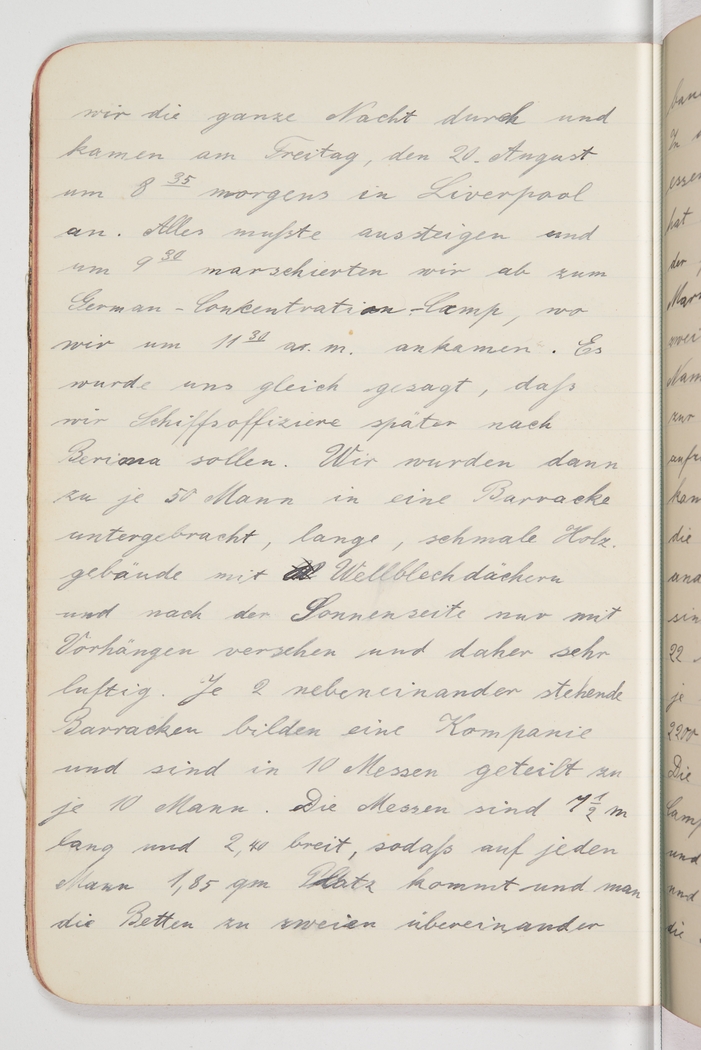 wir die ganze Nacht durch und
kamen am Freitag, den 20. August
um 8 35 morgens in Liverpool
an. Alles mußte aussteigen und
um 9 30 marschierten wir ab zum
German-Conkentration-Camp, wo
wir um 11 30 a. m. ankamen. Es
wurde uns gleich gesagt, daß
wir Schiffsoffiziere später nach
Berima sollen. Wir wurden dann
zu je 50 Mann in eine Barracke
untergebracht, lange, schmale Holz-
gebäude mit Wellblechdächern
und nach der Sonnenseite nur mit
Vorhängen versehen und daher sehr
luftig. Je 2 nebeneinander stehende
Barracken bilden eine Kompanie
und sind in 10 Messen geteilt zu
je 10 Mann. Die Messen sind 7 1/2 m
lang und 2,40 breit, sodaß auf jeden
Mann 1,85 qm Platz kommt und man
die Betten zu zweien übereinander